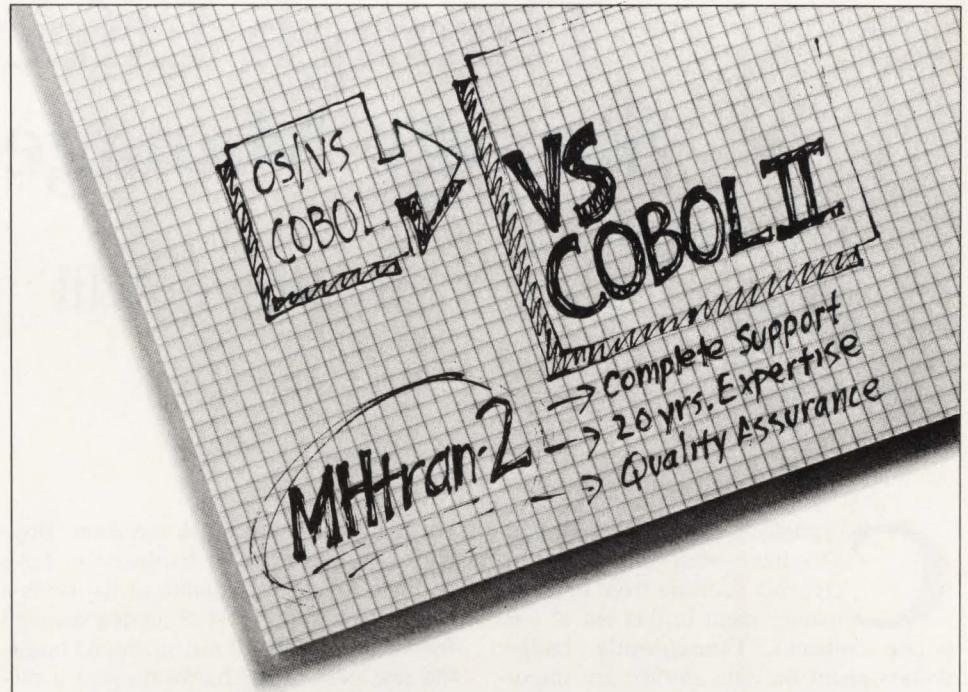 OS/VS
COBOL
VS
COBOL II
MHtran-2
→ Complete Support
→ 20 yrs. Expertise
→ Quality Assurance